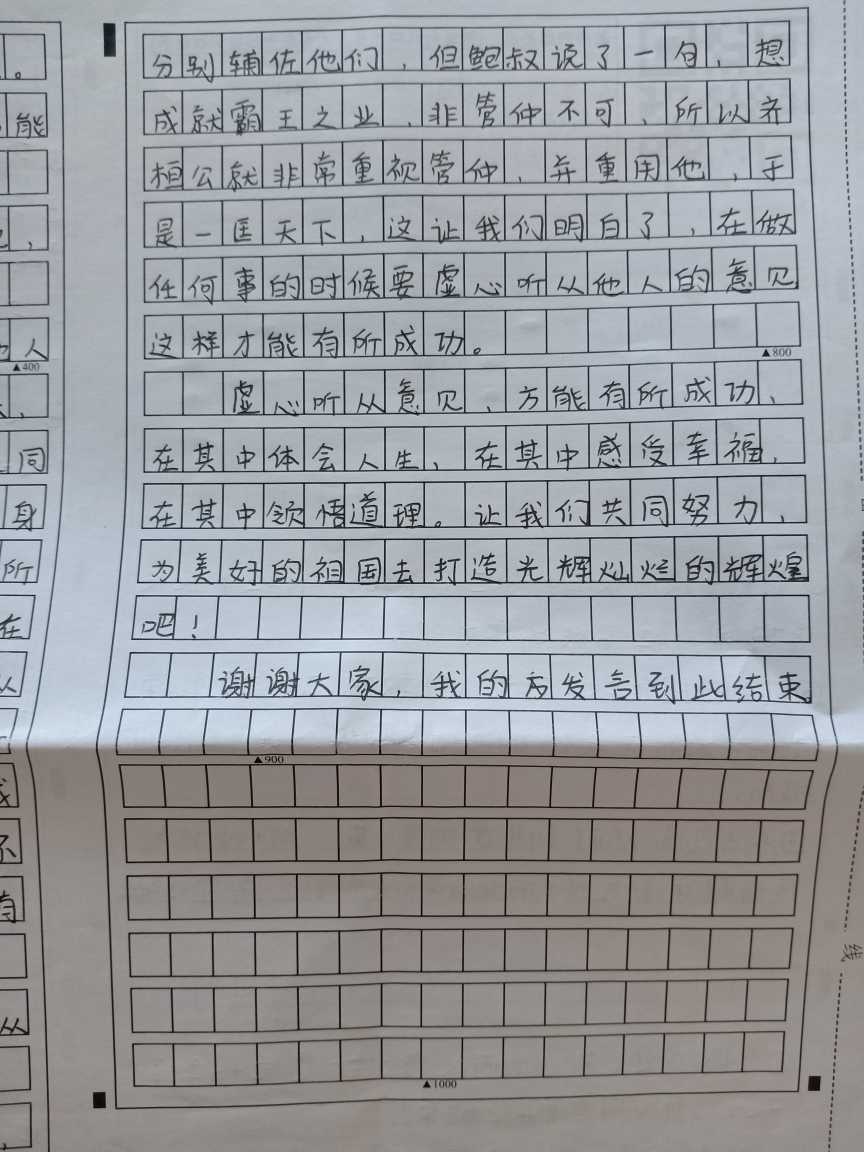 分别辅佐他们，但鲍叔说了一句，想
成就霸王之业，非管仲不可，所以齐
桓公就非常重视管仲，并重用他，于
是一匡天下，这让我们明白了，在做
任何事的时候要虚心听从他人的意见
这样才能有所成功。
▲800
虚心听从意见，方能有所成功，
在其中体会人生，在其中感受幸福，
在其中领悟道理。让我们共同努力，
为美好的祖国去打造光辉灿烂的辉煌
吧！
谢谢大家，我的发言到此结束
▲900
▲1000
。
能
，
人
▲400
，
同
身
所
在
从
不
有
从
，
线